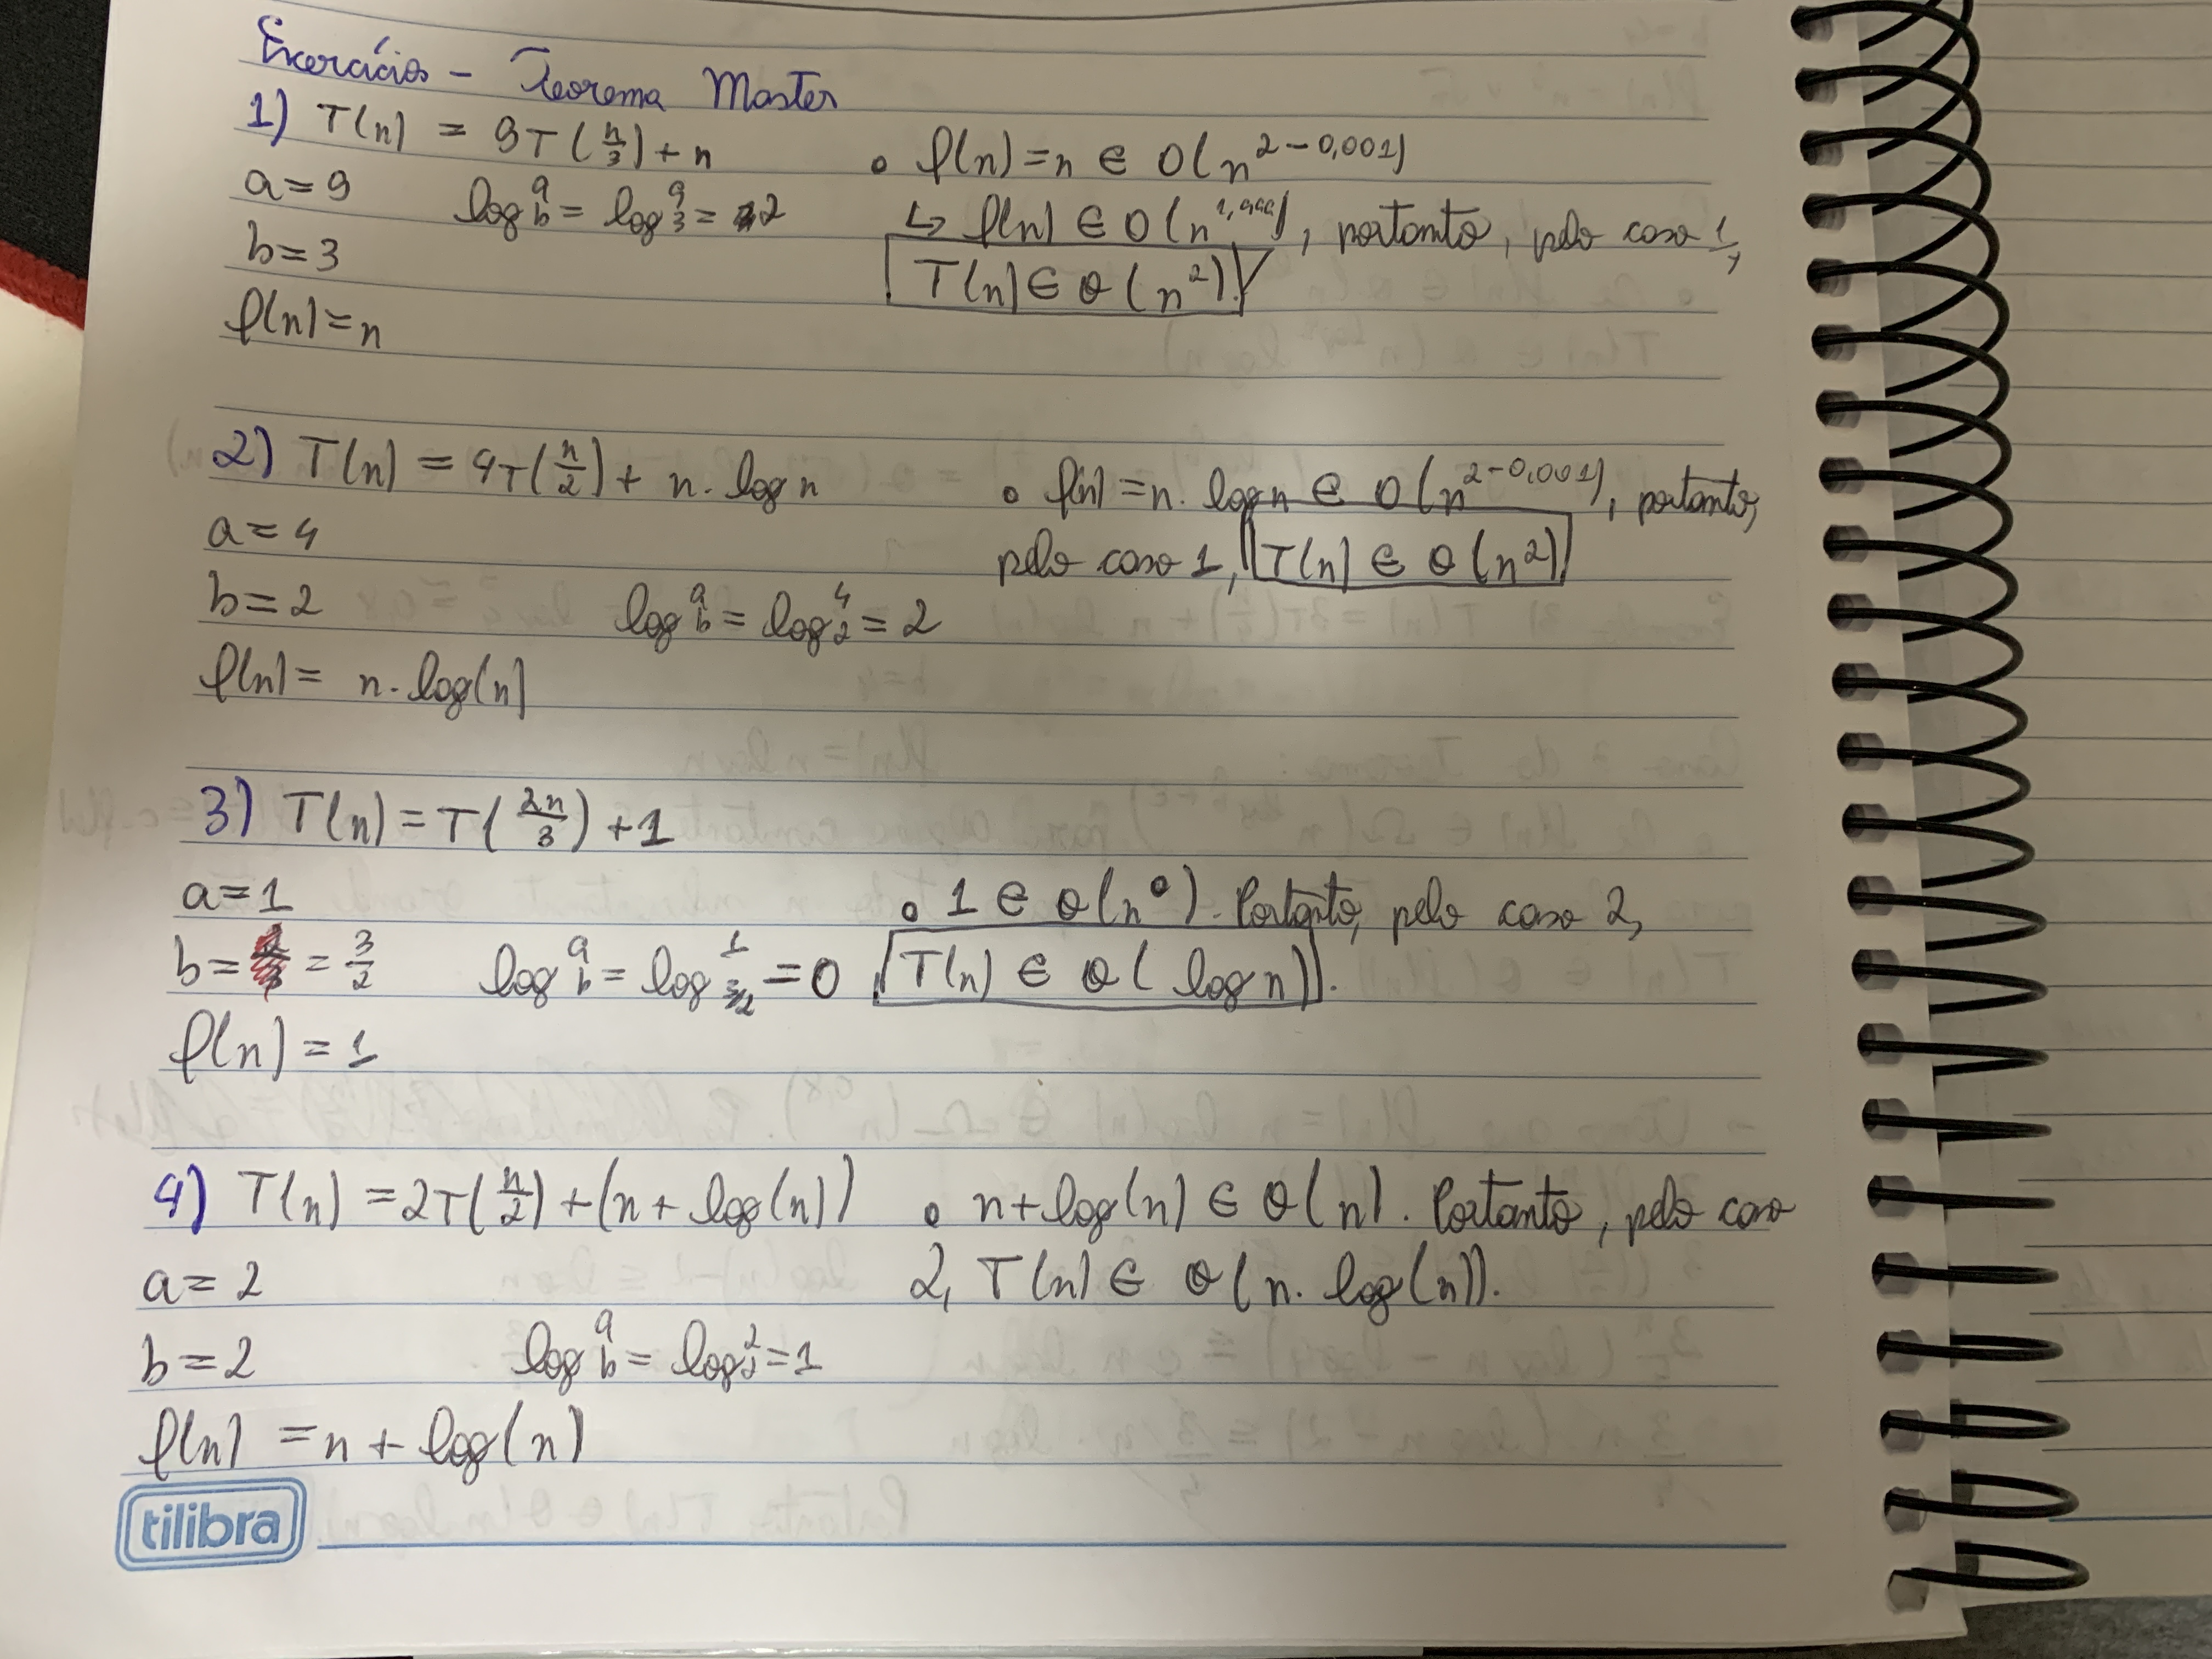 Exercícios - Teorema Master
1) T(n) = 9T(n/3) + n
a = 9
log_b^a = log_3^9 = 2
b = 3
f(n) = n
• f(n) = n ∈ O(n^{2-0,001})
↳ f(n) ∈ O(n^{1,999}), portanto, pelo caso 1,
T(n) ∈ Θ(n²)
2) T(n) = 4T(n/2) + n. log n
a = 4
b = 2
log_b^a = log_2^4 = 2
f(n) = n. log(n)
• f(n) = n. log n ∈ O(n^{2-0,001}), portanto,
pelo caso 1, T(n) ∈ Θ(n²)
3) T(n) = T(2n/3) + 1
a = 1
b = = 3/2
log_b^a = log_{3/2}^1 = 0
f(n) = 1
• 1 ∈ Θ(n⁰). Portanto, pelo caso 2,
T(n) ∈ Θ(log n).
4) T(n) = 2T(n/2) + (n + log(n))
a = 2
b = 2
log_b^a = log_2^2 = 1
f(n) = n + log(n)
• n + log(n) ∈ Θ(n). Portanto, pelo caso
2, T(n) ∈ Θ(n. log(n)).
tilibra